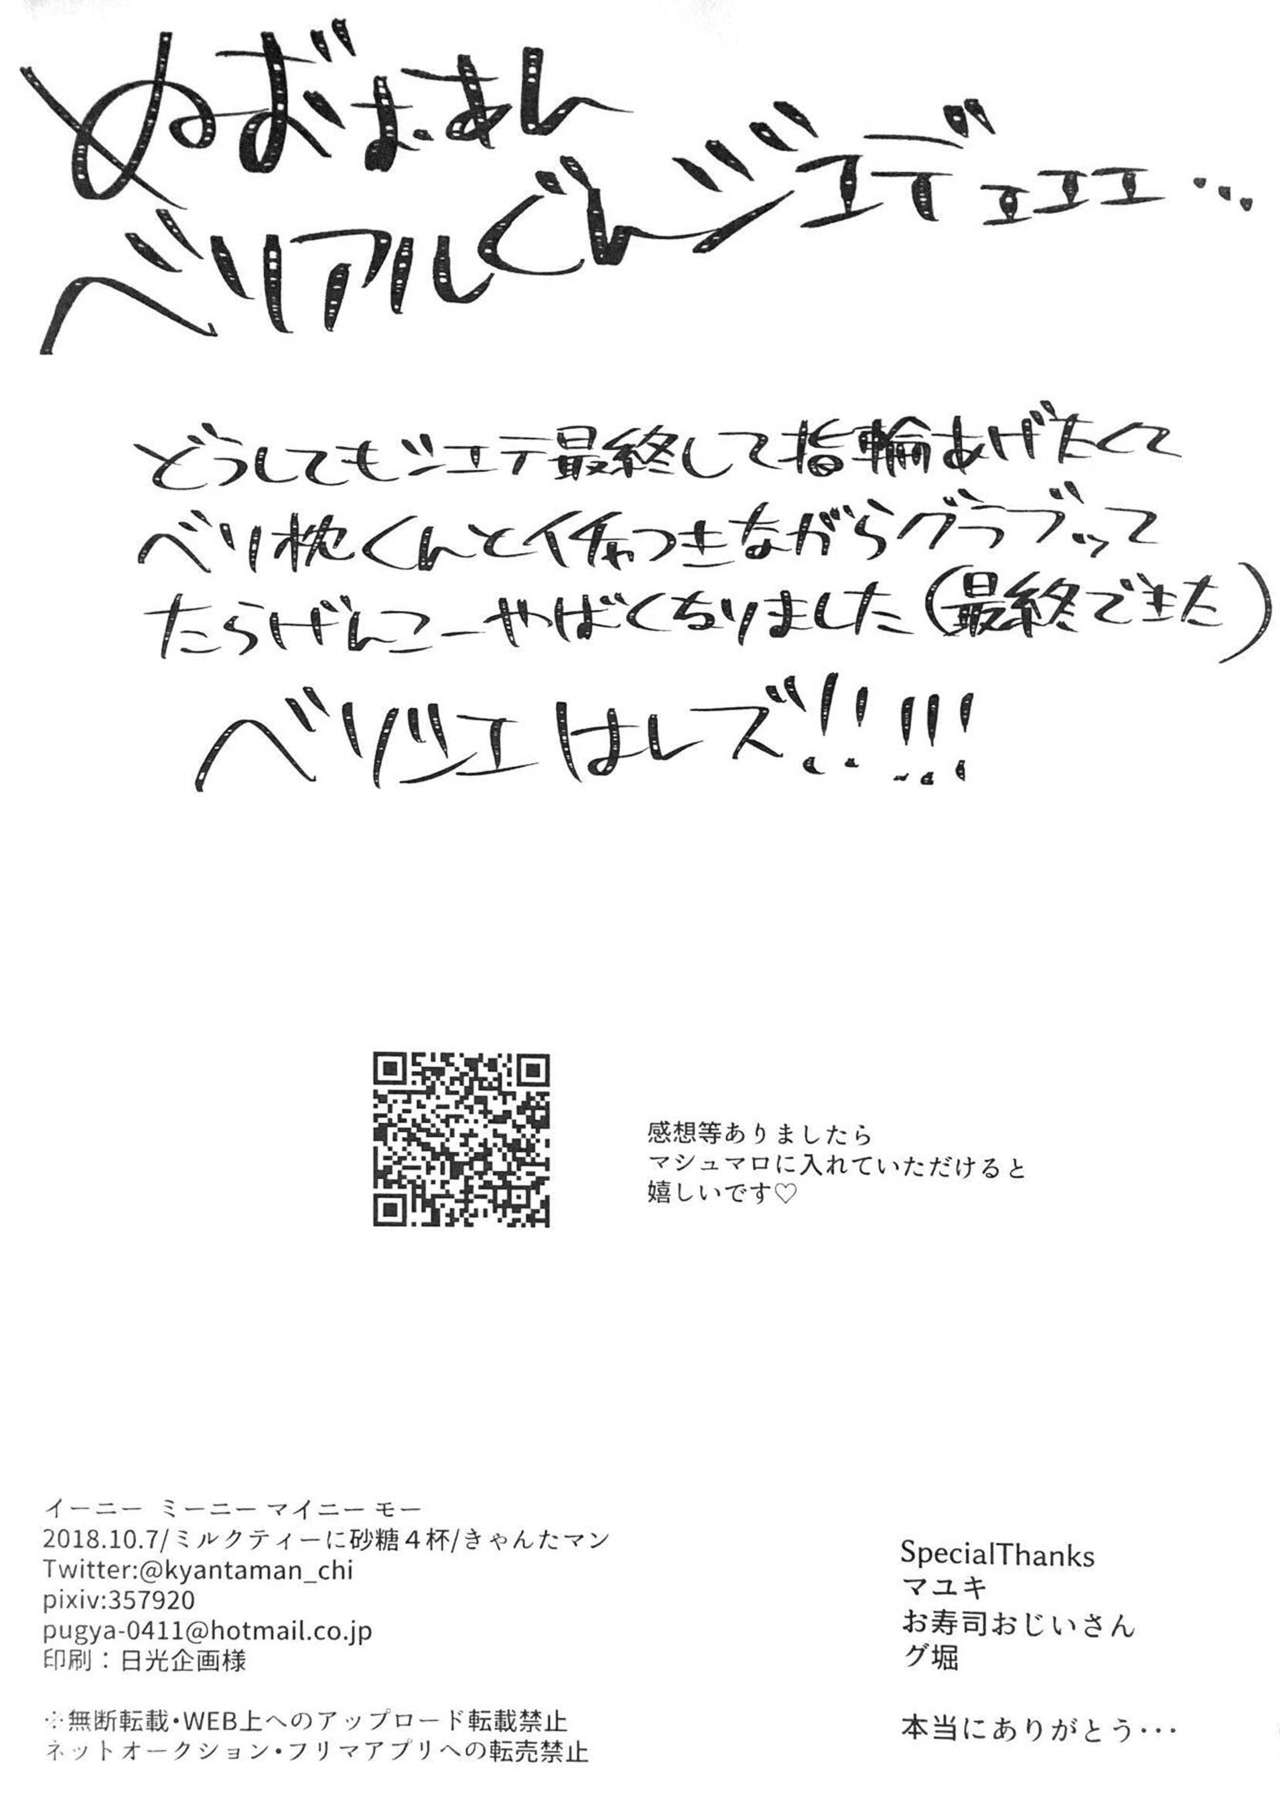 ぬお゛ぉあん
ベリアルぐんジエデェエエ…
どうしてもシエテ最終して指輪あげたくて
ベリ枕くんとイチャつきながらグラブッて
たらげんこーやばくなりました(最終できた)
ベリシエはレズ!!!!!
感想等ありましたら
マシュマロに入れていただけると
嬉しいです♡
イーニー ミーニー マイニー モー
2018.10.7/ミルクティーに砂糖４杯/きゃんたマン
Twitter:@kyantaman_chi
pixiv:357920
pugya-0411@hotmail.co.jp
印刷：日光企画様
※無断転載・WEB上へのアップロード転載禁止
ネットオークション・フリマアプリへの転売禁止
SpecialThanks
マユキ
お寿司おじいさん
グ堀
本当にありがとう･･･